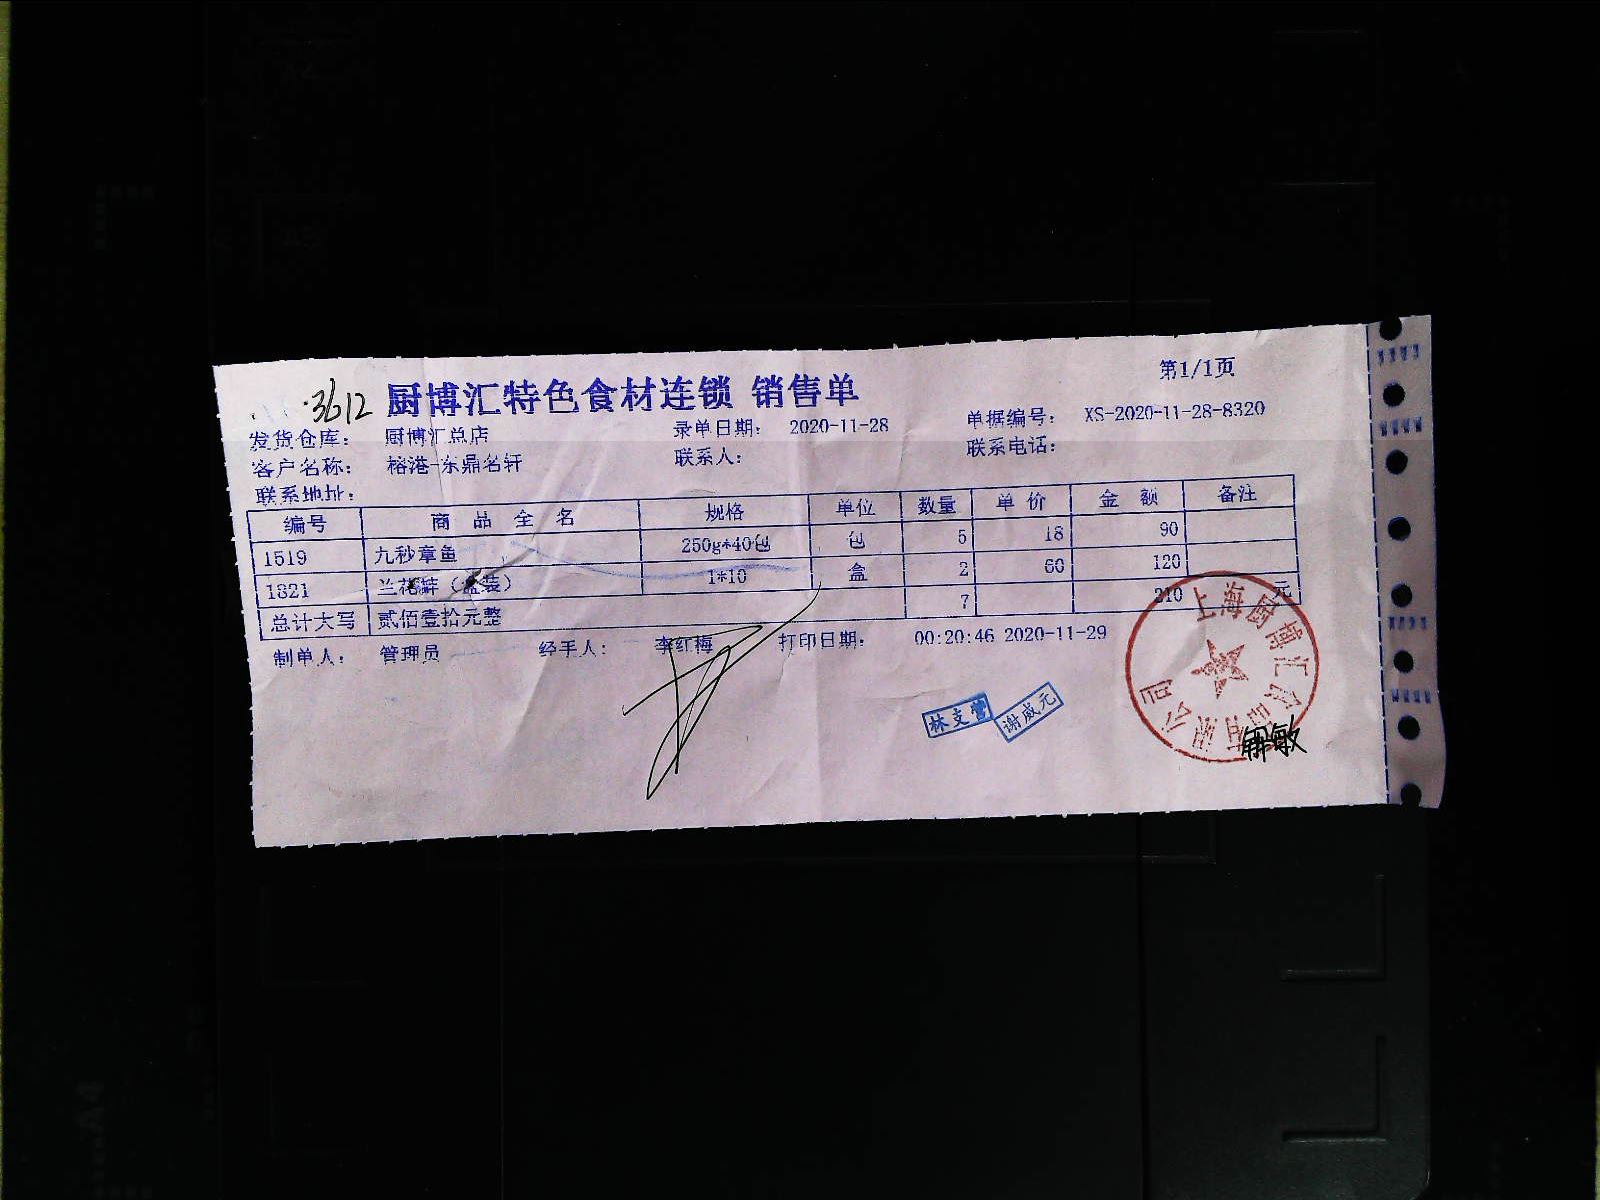 第1/1页
3612 厨博汇特色食材连锁 销售单
发货仓库： 厨博汇总店 录单日期： 2020-11-28 单据编号： XS-2020-11-28-8320
客户名称： 榕港-东鼎名轩 联系人： 联系电话：
联系地址：
编号 商品全名 规格 单位 数量 单价 金额 备注
1519 九秒章鱼 250g*40包 包 5 18 90
1821 兰花蚌（盒装） 1*10 盒 2 60 120
总计大写 贰佰壹拾元整 7 210 元
制单人： 管理员 经手人： 李红梅 打印日期： 00:20:46 2020-11-29
林支营 谢威元
上海厨博汇食品有限公司
敏